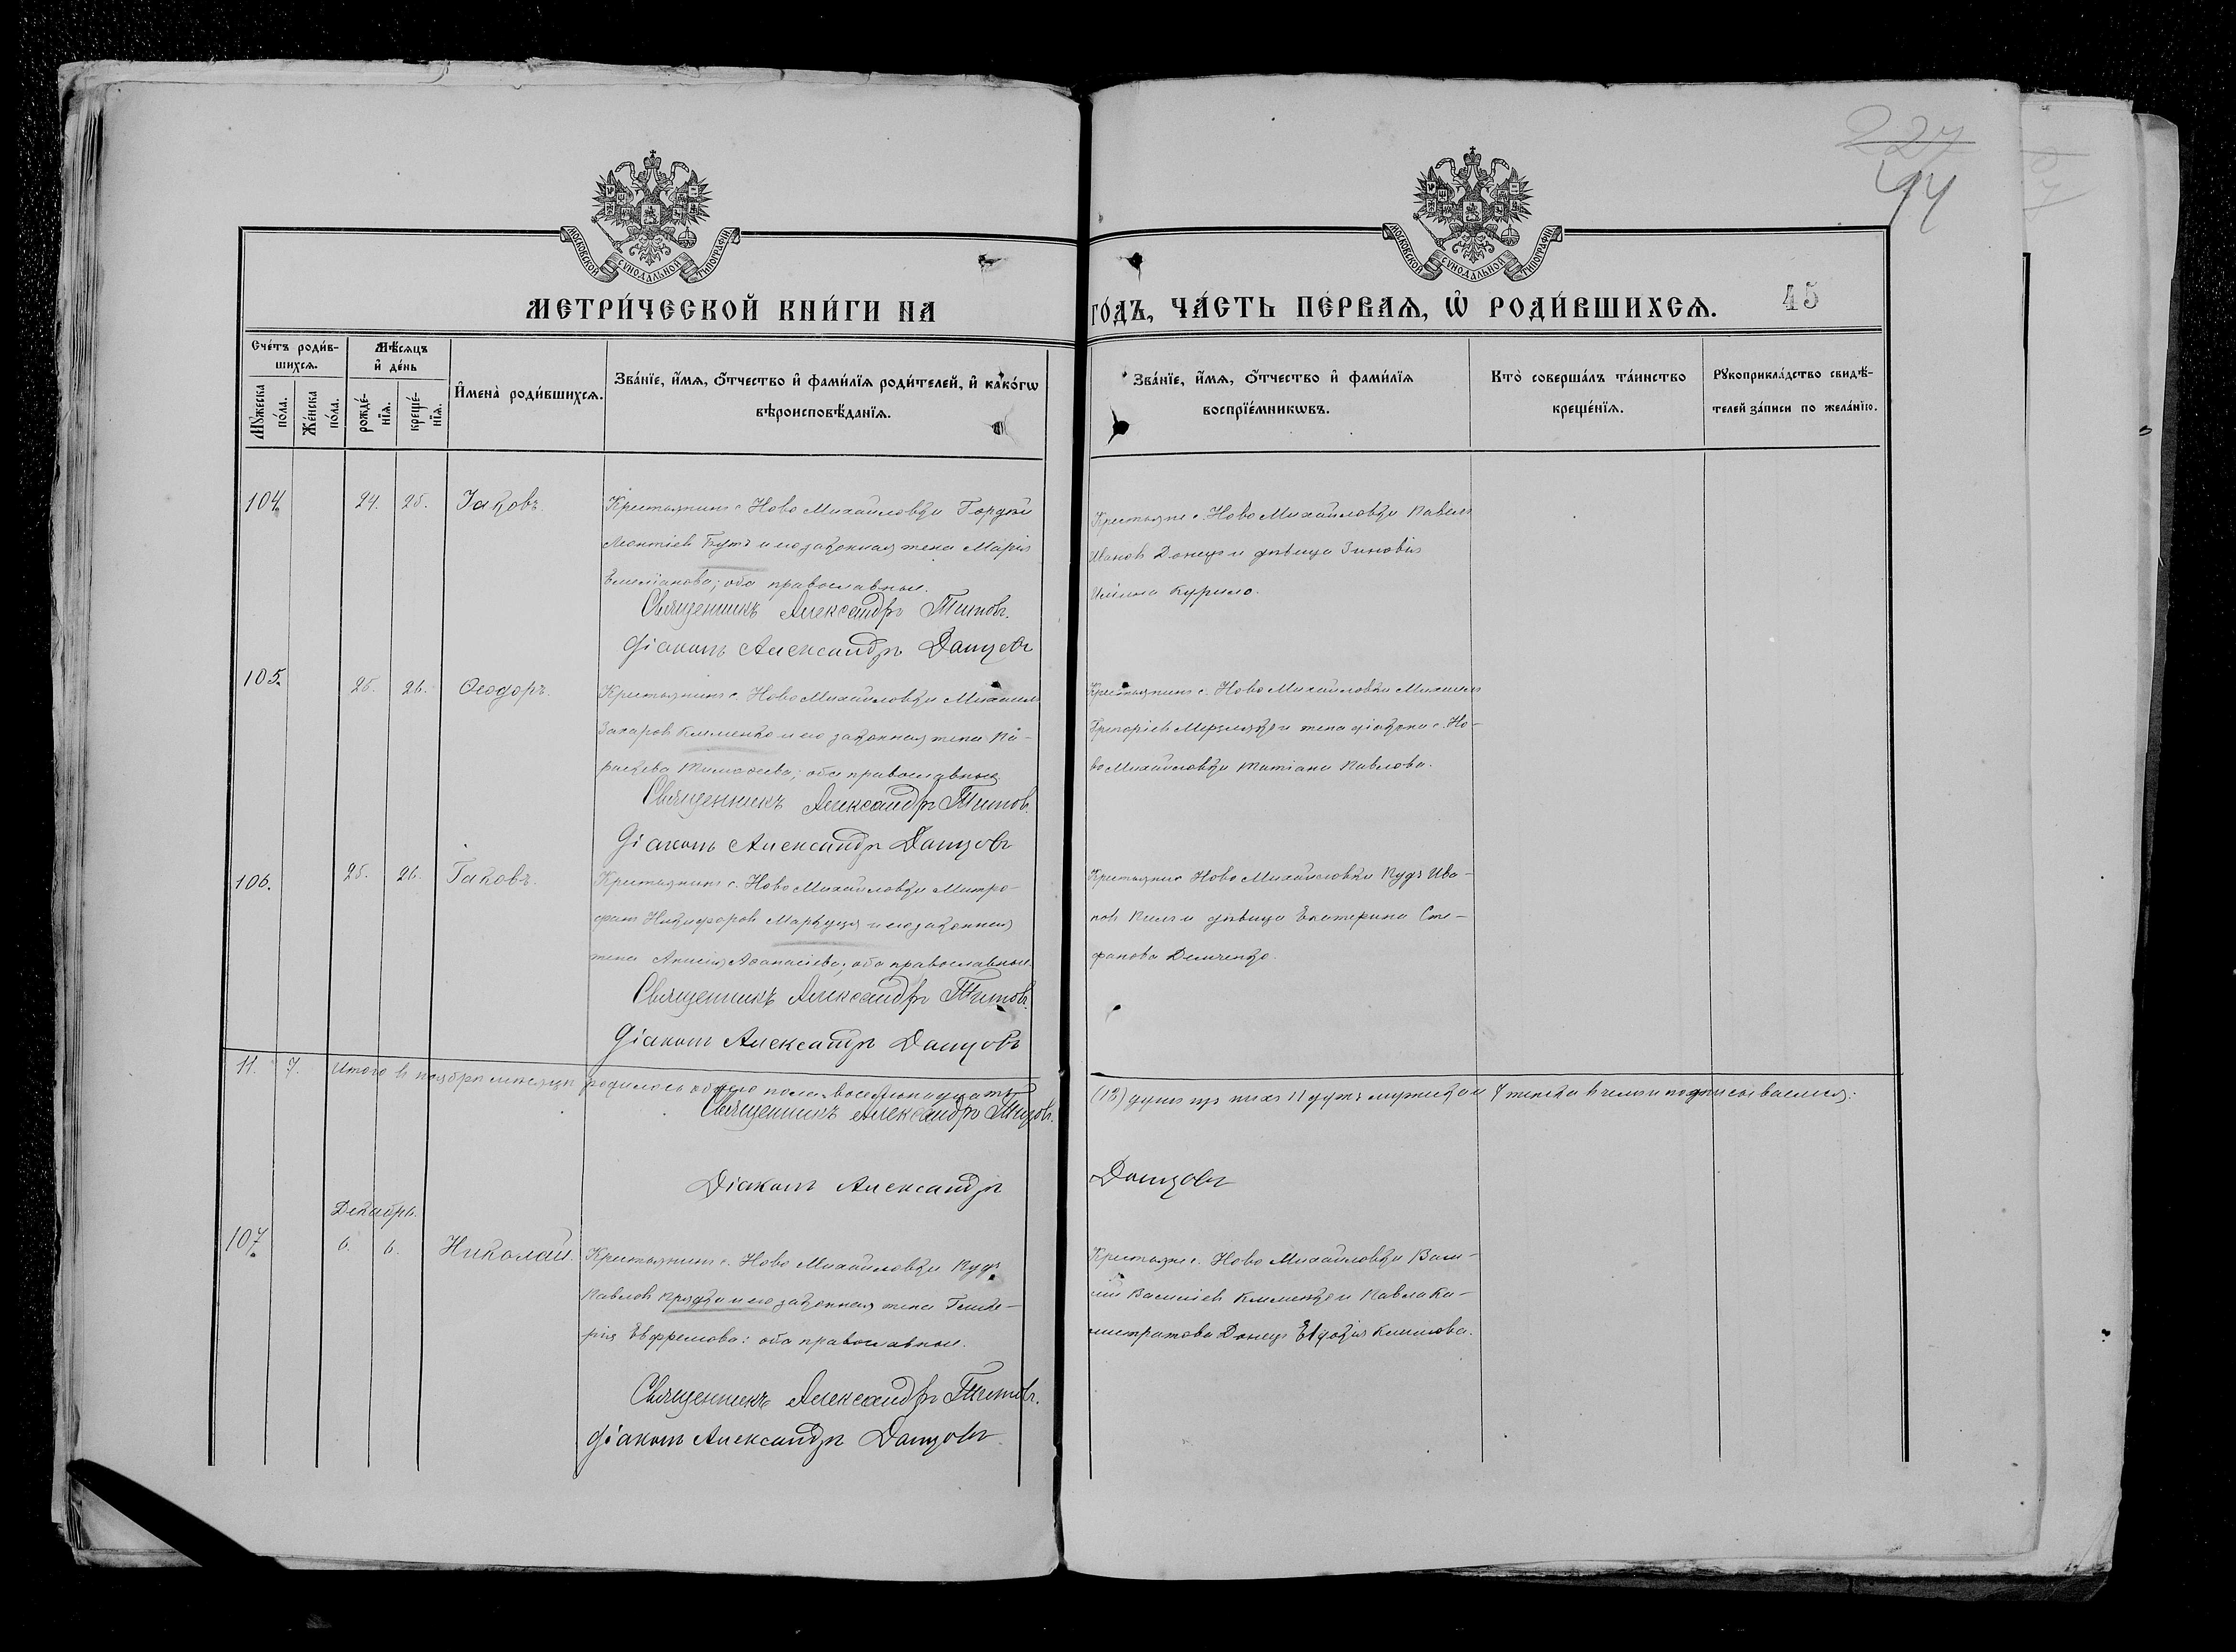 227
44
МОСКОВСКОЙ СѴНОДАЛЬНОЙ ТИПОГРАФІИ
МОСКОВСКОЙ СѴНОДАЛЬНОЙ ТИПОГРАФІИ
МЕТРИ́ЧЕСКОЙ КНИ́ГИ НА
ГО́ДЪ, ЧА́СТЬ ПЕ́РВАѦ, Ѡ҆ РОДИ́ВШИХСѦ.
45
Сче́тъ роди́в-
шихсѧ.
Мꙋ́жеска по́ла.
Же́нска по́ла.
Мѣ́сѧцъ
и҆ де́нь
рожде́-
нїѧ.
креще́-
нїѧ.
И҆мена̀ роди́вшихсѧ.
Зва́нїе, и҆́мѧ, ѻ҆́тчество и҆ фами́лїѧ роди́телей, и҆ како́гѡ
вѣроисповѣ́данїѧ.
Зва́нїе, и҆́мѧ, ѻ҆́тчество и҆ фами́лїѧ
воспрїе́мникѡвъ.
Кто̀ соверша́лъ та́инство
креще́нїѧ.
Рꙋкоприкла́дство свидѣ́-
телей за́писи по жела́нїю.
104. 24. 25. Іаковъ.
Крестьянинъ с. Ново Михайловки Гордей
Леонтіевъ Бутъ и его законная жена Марія
Емеліанова; оба православные.
Священникъ Александръ Титовъ.
Діаконъ Александръ Данцовъ
Крестьяне с. Ново Михайловки Павелъ
Ивановъ Донецъ и дѣвица Зиновія
Ильина Курило.
105. 25. 26. Ѳеодоръ.
Крестьянинъ с. Ново Михайловки Михаилъ
Захаровъ Клименко и его законная жена Па-
раскева Тимоѳеева; оба православные
Священникъ Александръ Титовъ.
Діаконъ Александръ Данцовъ
Крестьянинъ с. Ново Михайловки Михаилъ
Григоріевъ и жена діакона с. Но-
во Михайловки Татіана Павлова.
106. 25. 26. Іаковъ.
Крестьянинъ с. Ново Михайловки Митро-
фанъ Никифоровъ и его законная
жена Анисія Аѳанасіева; оба православные.
Священникъ Александръ Титовъ.
Діаконъ Александръ Данцовъ
Крестьяне Ново Михайловки Иуда Ива-
новъ и дѣвица Екатерина Сте-
фанова Демченко.
11. 7. Итого въ ноябрѣ мѣсяцѣ родилось обоего пола восемьнадцать
(18) душъ изъ нихъ 11 душъ мужеска и 7 женска въ чемъ и подписываемся:
Священникъ Александръ Титовъ.
Діаконъ Александръ
Данцовъ
Декабрь.
107. 6. 6. Николай.
Крестьянинъ с. Ново Михайловки Иуда
Павловъ и его законная жена Глике-
рія Евфремова: оба православные.
Священникъ Александръ Титовъ.
Діаконъ Александръ Данцовъ
Крестьяне с. Ново Михайловки Васи-
лій Василіевъ Клименко и Павла Ка-
листратова Донецъ Евдокія Климова.